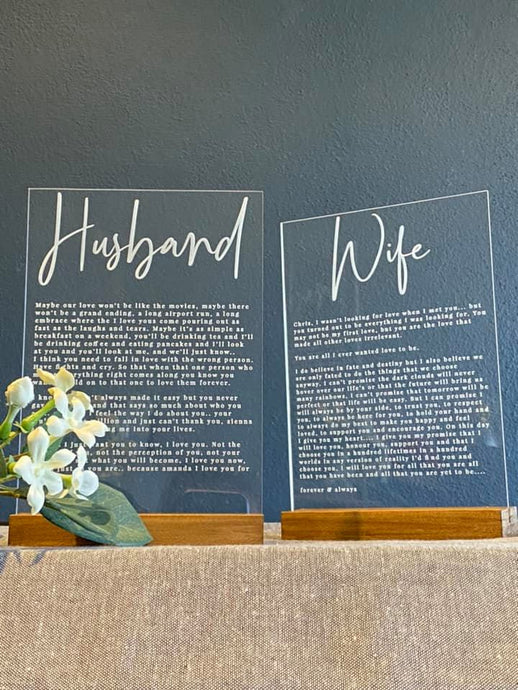 Husband
Maybe our love won't be like the movies, maybe there
won't be a grand ending, a long airport run, a long
embrace where the I love yous come pouring out as
fast as the laughs and tears. Maybe it's as simple as
breakfast on a weekend, you'll be drinking tea and I'll
be drinking coffee and eating pancakes and I'll look
at you and you'll look at me, and we'll just know..
I think you need to fall in love with the wrong person.
have and cry. So that when that one person who
everything right comes along you know you
d on to that one to love them forever.
always made it easy but you never
and that says so much about who you
feel the way I do about you.. your
lion and just can't thank you, sienna
ng me into your lives.
just you to know, I love you. Not the
n, not the perception of you, not your
what you will become, I love you now,
you are.. because amanda I love you for
Wife
Chris, i wasn't looking for love when I met you... but
you turned out to be everything I was looking for. You
may not be my first love, but you are the love that
made all other loves irrelevant.
You are all I ever wanted love to be.
I do believe in fate and destiny but I also believe we
are only fated to do the things that we choose
anyway. I can't promise the dark clouds will never
hover over our life's or that the future will bring us
many rainbows. I can't promise that tomorrow will be
perfect or that life will be easy. But I can promise I
will always be by your side, to trust you, to respect
you, to always be here for you, to hold your hand and
to always do my best to make you happy and feel
loved, to support you and encourage you. On this day
I give you my heart.... I give you my promise that I
will love you, honour you, support you and that I
choose you in a hundred lifetimes in a hundred
worlds in any version of reality I'd find you and
choose you. I will love you for all that you are all
that you have been and all that you are yet to be....
forever & always